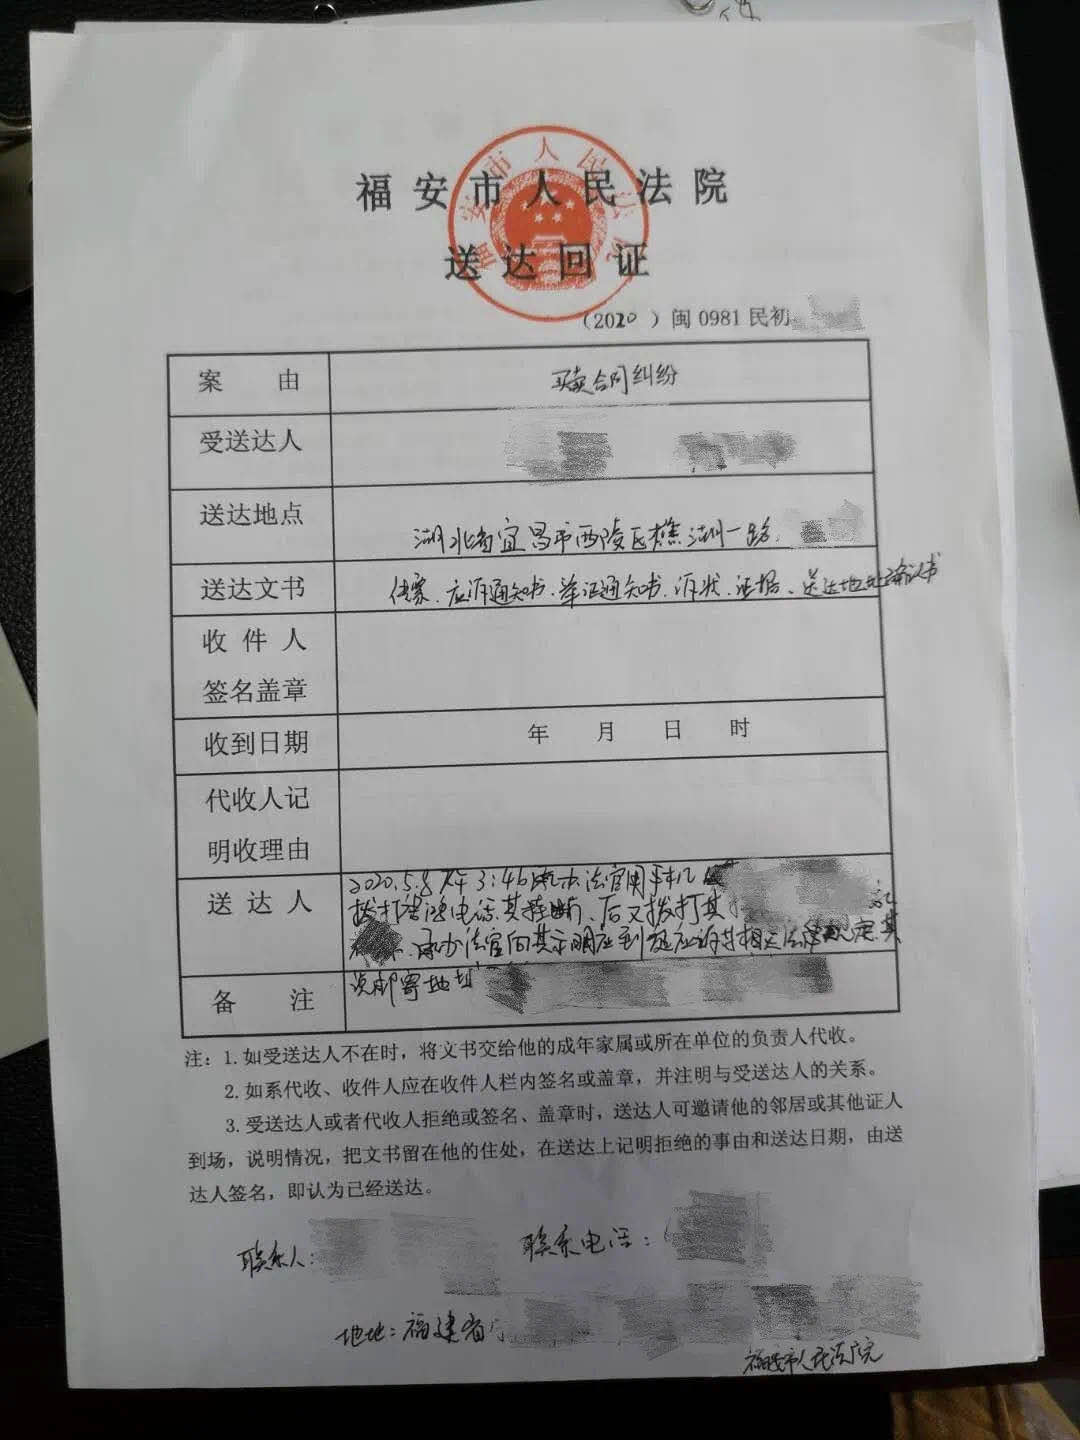 福安市人民法院
福安市人民法院
送达回证
（2020）闽0981民初
案 由 买卖合同纠纷
受送达人
送达地点 湖北省宜昌市西陵区樵湖一路
送达文书 传票、应诉通知书、举证通知书、诉状、证据、送达地址确认书
收 件 人
签名盖章
收到日期 年 月 日 时
代收人记
明收理由
送 达 人 2020.5.8 下午3:46 承办法官用手机
拨打 电话,其挂断,后又拨打其
承办法官向其示明应到庭应诉 相关法律规定,其
备 注 说邮寄地址
注：1.如受送达人不在时，将文书交给他的成年家属或所在单位的负责人代收。
2.如系代收、收件人应在收件人栏内签名或盖章，并注明与受送达人的关系。
3.受送达人或者代收人拒绝或签名、盖章时，送达人可邀请他的邻居或其他证人
到场，说明情况，把文书留在他的住处，在送达上记明拒绝的事由和送达日期，由送
达人签名，即认为已经送达。
联系人： 联系电话：
地址：福建省
福安市人民法院